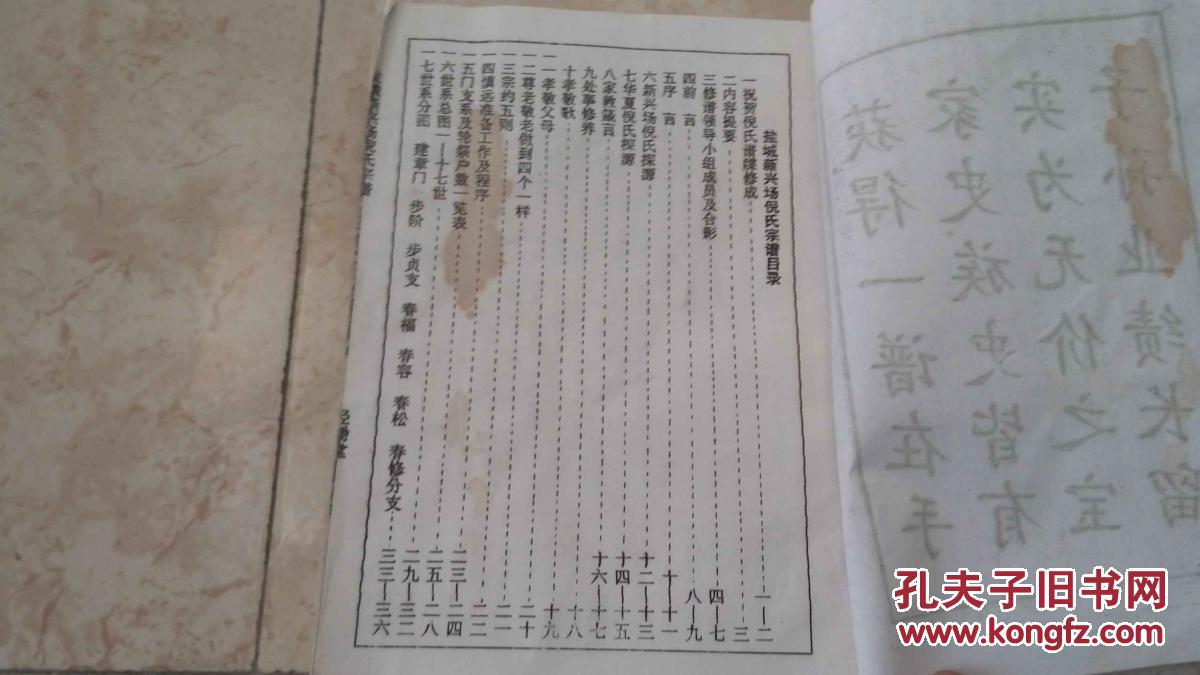 盐城新兴场倪氏宗谱目录
一祝贺倪氏谱牒修成 一—二
二内容提要 三
三修谱领导小组成员及合影 四—七
四前言 八—九
五序言 十—十一
六新兴场倪氏探源 十二—十三
七华夏倪氏探源 十四—十五
八家教箴言 十六—十七
九处事修养 十八
十孝敬歌 十九
一一孝敬父母 二十
一二尊老敬老做到四个一样 二一
一三宗约五则 二二
一四慎远准备工作及程序 二三—二四
一五门支系及轮祭户数一览表 二五—二八
一六世系总图一——十七世 二九—三二
一七世系分图 建章门 步阶 步贞支 春福 春容 春松 春修分支 三三—三六
业绩长留
实为无价之宝
家史族史皆有
获得一谱在手
孔夫子旧书网
www.kongfz.com